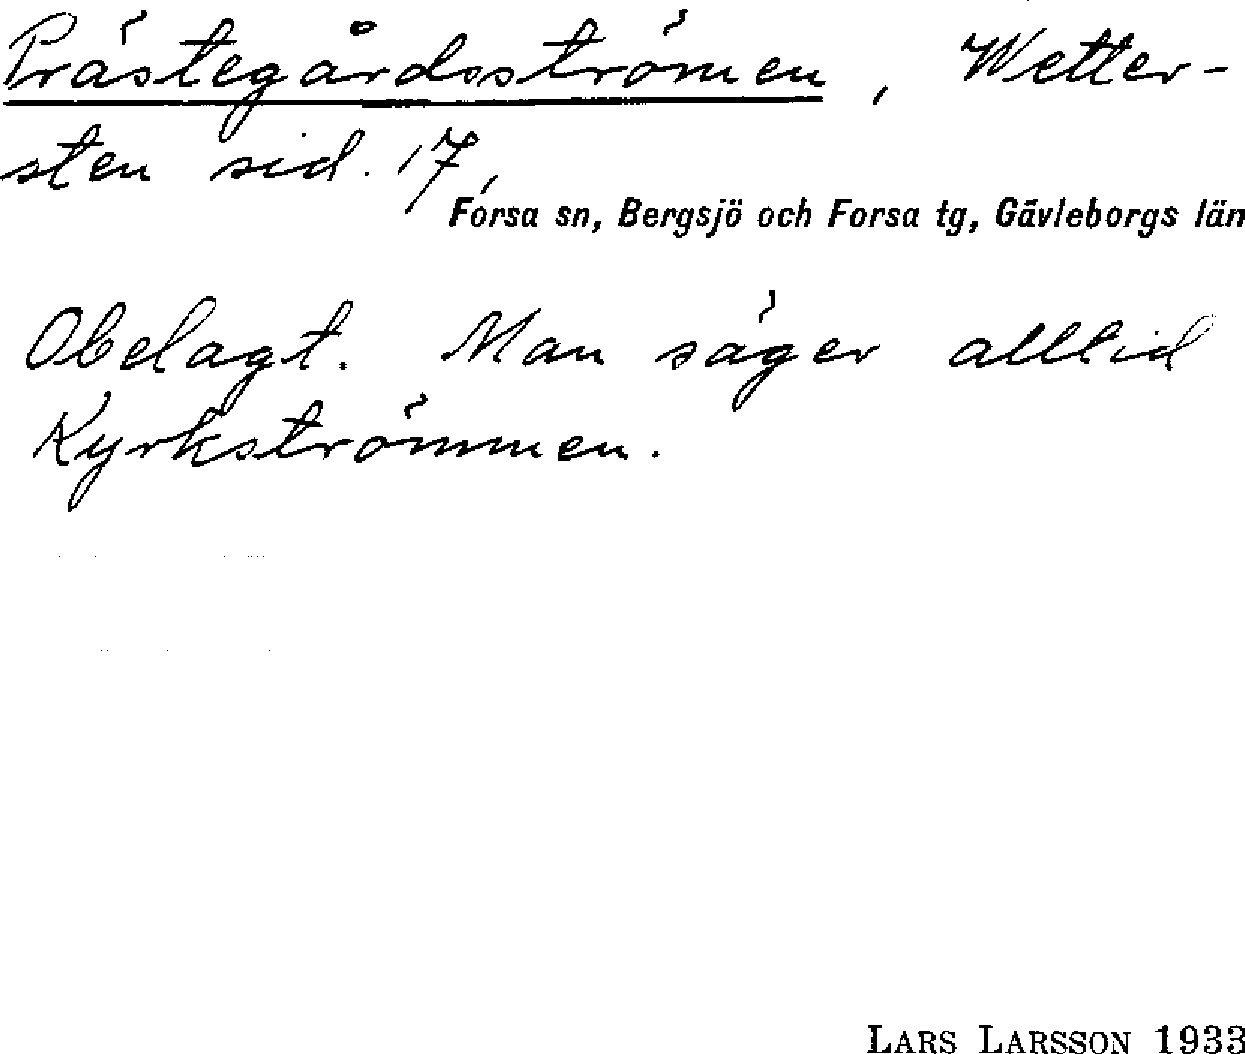 Prästegårdsströmen, Wetter-
sten sid. 17,
Forsa sn, Bergsjö och Forsa tg, Gävleborgs län
Obelagt. Man säger alltid
Kyrkströmmen.
LARS LARSSON 1933